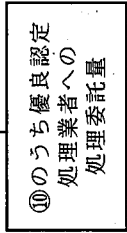 ⑩のうち優良認定
処理業者への
処理委託量